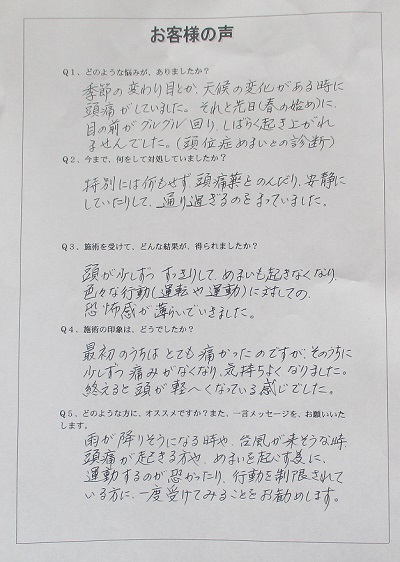 お客様の声
Q1、どのような悩みが、ありましたか？
季節の変わり目とか、天候の変化がある時に
頭痛がしていました。それと先日(春の始め)に、
目の前がグルグル回り、しばらく起き上がれ
ませんでした。(頭位症めまいとの診断)
Q2、今まで、何をして対処していましたか？
特別には何もせず、頭痛薬とのんびり、安静に
していたりして、通り過ぎるのをまっていました。
Q3、施術を受けて、どんな結果が、得られましたか？
頭が少しずつ すっきりして、めまいも起きなくなり、
色々な行動(運転や運動)に対しての、
恐怖感が薄らいでいきました。
Q4、施術の印象は、どうでしたか？
最初のうちは とても痛かったのですが、そのうちに
少しずつ痛みがなくなり、気持ちよくなりました。
終えると頭が軽〜くなっている感じでした。
Q5、どのような方に、オススメですか？また、一言メッセージを、お願いいた
します。
雨が降りそうになる時や、台風が来そうな時、
頭痛が起きる方や、めまいを起こす為に、
運動するのが恐かったり、行動を制限されて
いる方に、一度受けてみることをお勧めします。